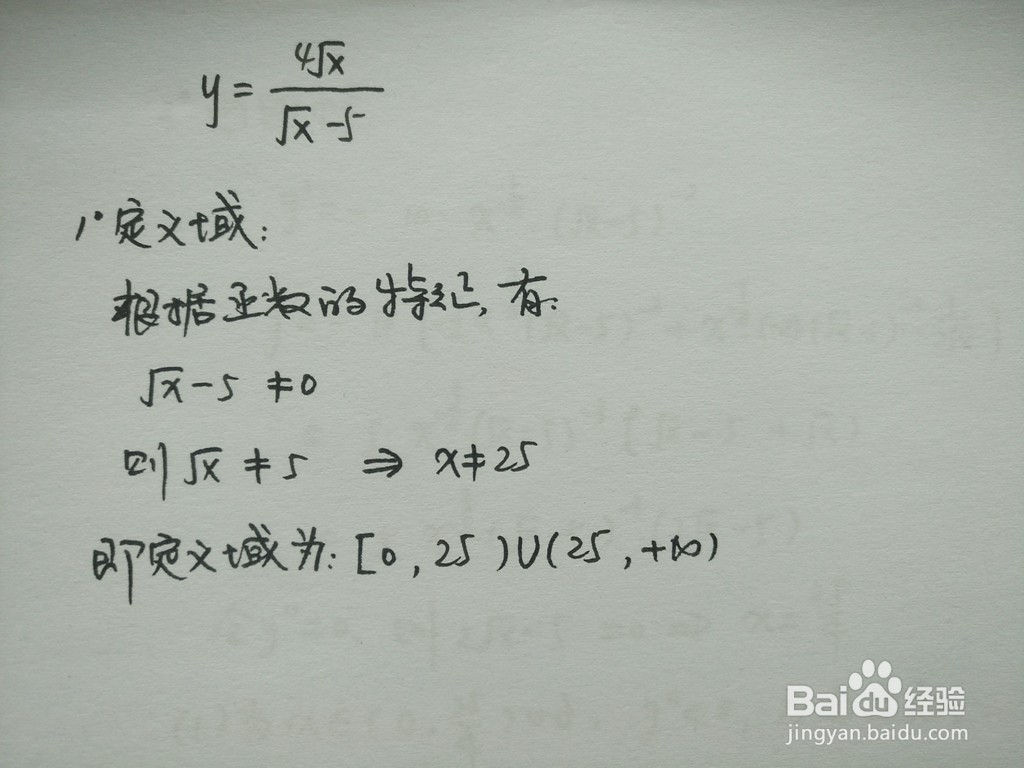 y = 4√x / (√x - 5)
1° 定义域:
根据函数的特征,有:
√x - 5 ≠ 0
则 √x ≠ 5 ⇒ x ≠ 25
即定义域为: [0, 25)∪(25, +∞)
Bai 经验
jingyan.baidu.com